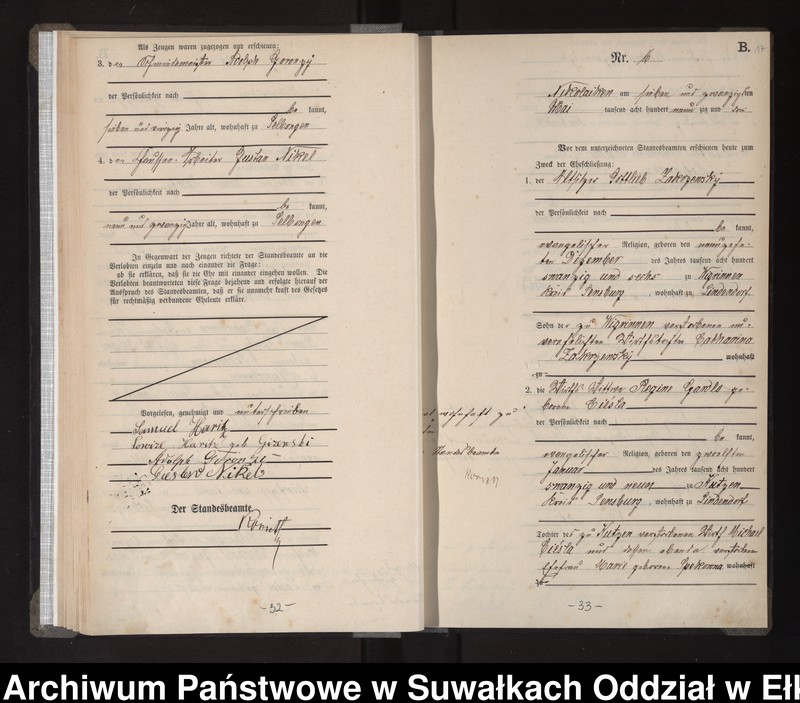 Als Zeugen waren zugezogen und erschienen:
3. der Schmiedemeister Adolph
der Persönlichkeit nach
be kannt,
sieben und vierzig Jahre alt, wohnhaft zu Selbongen
4. der Chaussee-Arbeiter Gustav Nikel
der Persönlichkeit nach
be kannt,
neun und zwanzig Jahre alt, wohnhaft zu Selbongen
In Gegenwart der Zeugen richtete der Standesbeamte an die
Verlobten einzeln und nach einander die Frage:
ob sie erklären, daß sie die Ehe mit einander eingehen wollen. Die
Verlobten beantworteten diese Frage bejahend und erfolgte hierauf der
Ausspruch des Standesbeamten, daß er sie nunmehr kraft des Gesetzes
für rechtmäßig verbundene Eheleute erkläre.
Vorgelesen, genehmigt und unterschrieben
Samuel Haritz
Lowize Haritz geb
Adolph
Gustav Nikel
Der Standesbeamte.
-32-
B.
17
Nr. 6
Nikolaiken am sieben und zwanzigsten
Mai tausend acht hundert neun zig und drei
Vor dem unterzeichneten Standesbeamten erschienen heute zum
Zweck der Eheschließung:
1. der Altsitzer Gottlieb Zakrzewsky
der Persönlichkeit nach
be kannt,
evangelischer Religion, geboren den neunzehn-
ten Dezember des Jahres tausend acht hundert
zwanzig und sechs zu Wigrinnen
Kreis Sensburg, wohnhaft zu Lindendorf
Sohn der zu Wigrinnen verstorbenen un-
verehelichten Catharina
Zakrzewsky wohnhaft
zu
2. die Wirths Wittwe Regine ge-
borene Ciesla
der Persönlichkeit nach
be kannt,
evangelischer Religion, geboren den zwoelften
Januar des Jahres tausend acht hundert
zwanzig und neun zu Kutzen
Kreis Sensburg, wohnhaft zu Lindendorf
Tochter des zu Kutzen verstorbenen Wirth Michael
Ciesla und dessen ebenda verstorbenen
Ehefrau Marie geborene wohnhaft
zu
-33-
Archiwum Państwowe w Suwałkach Oddział w Ełk